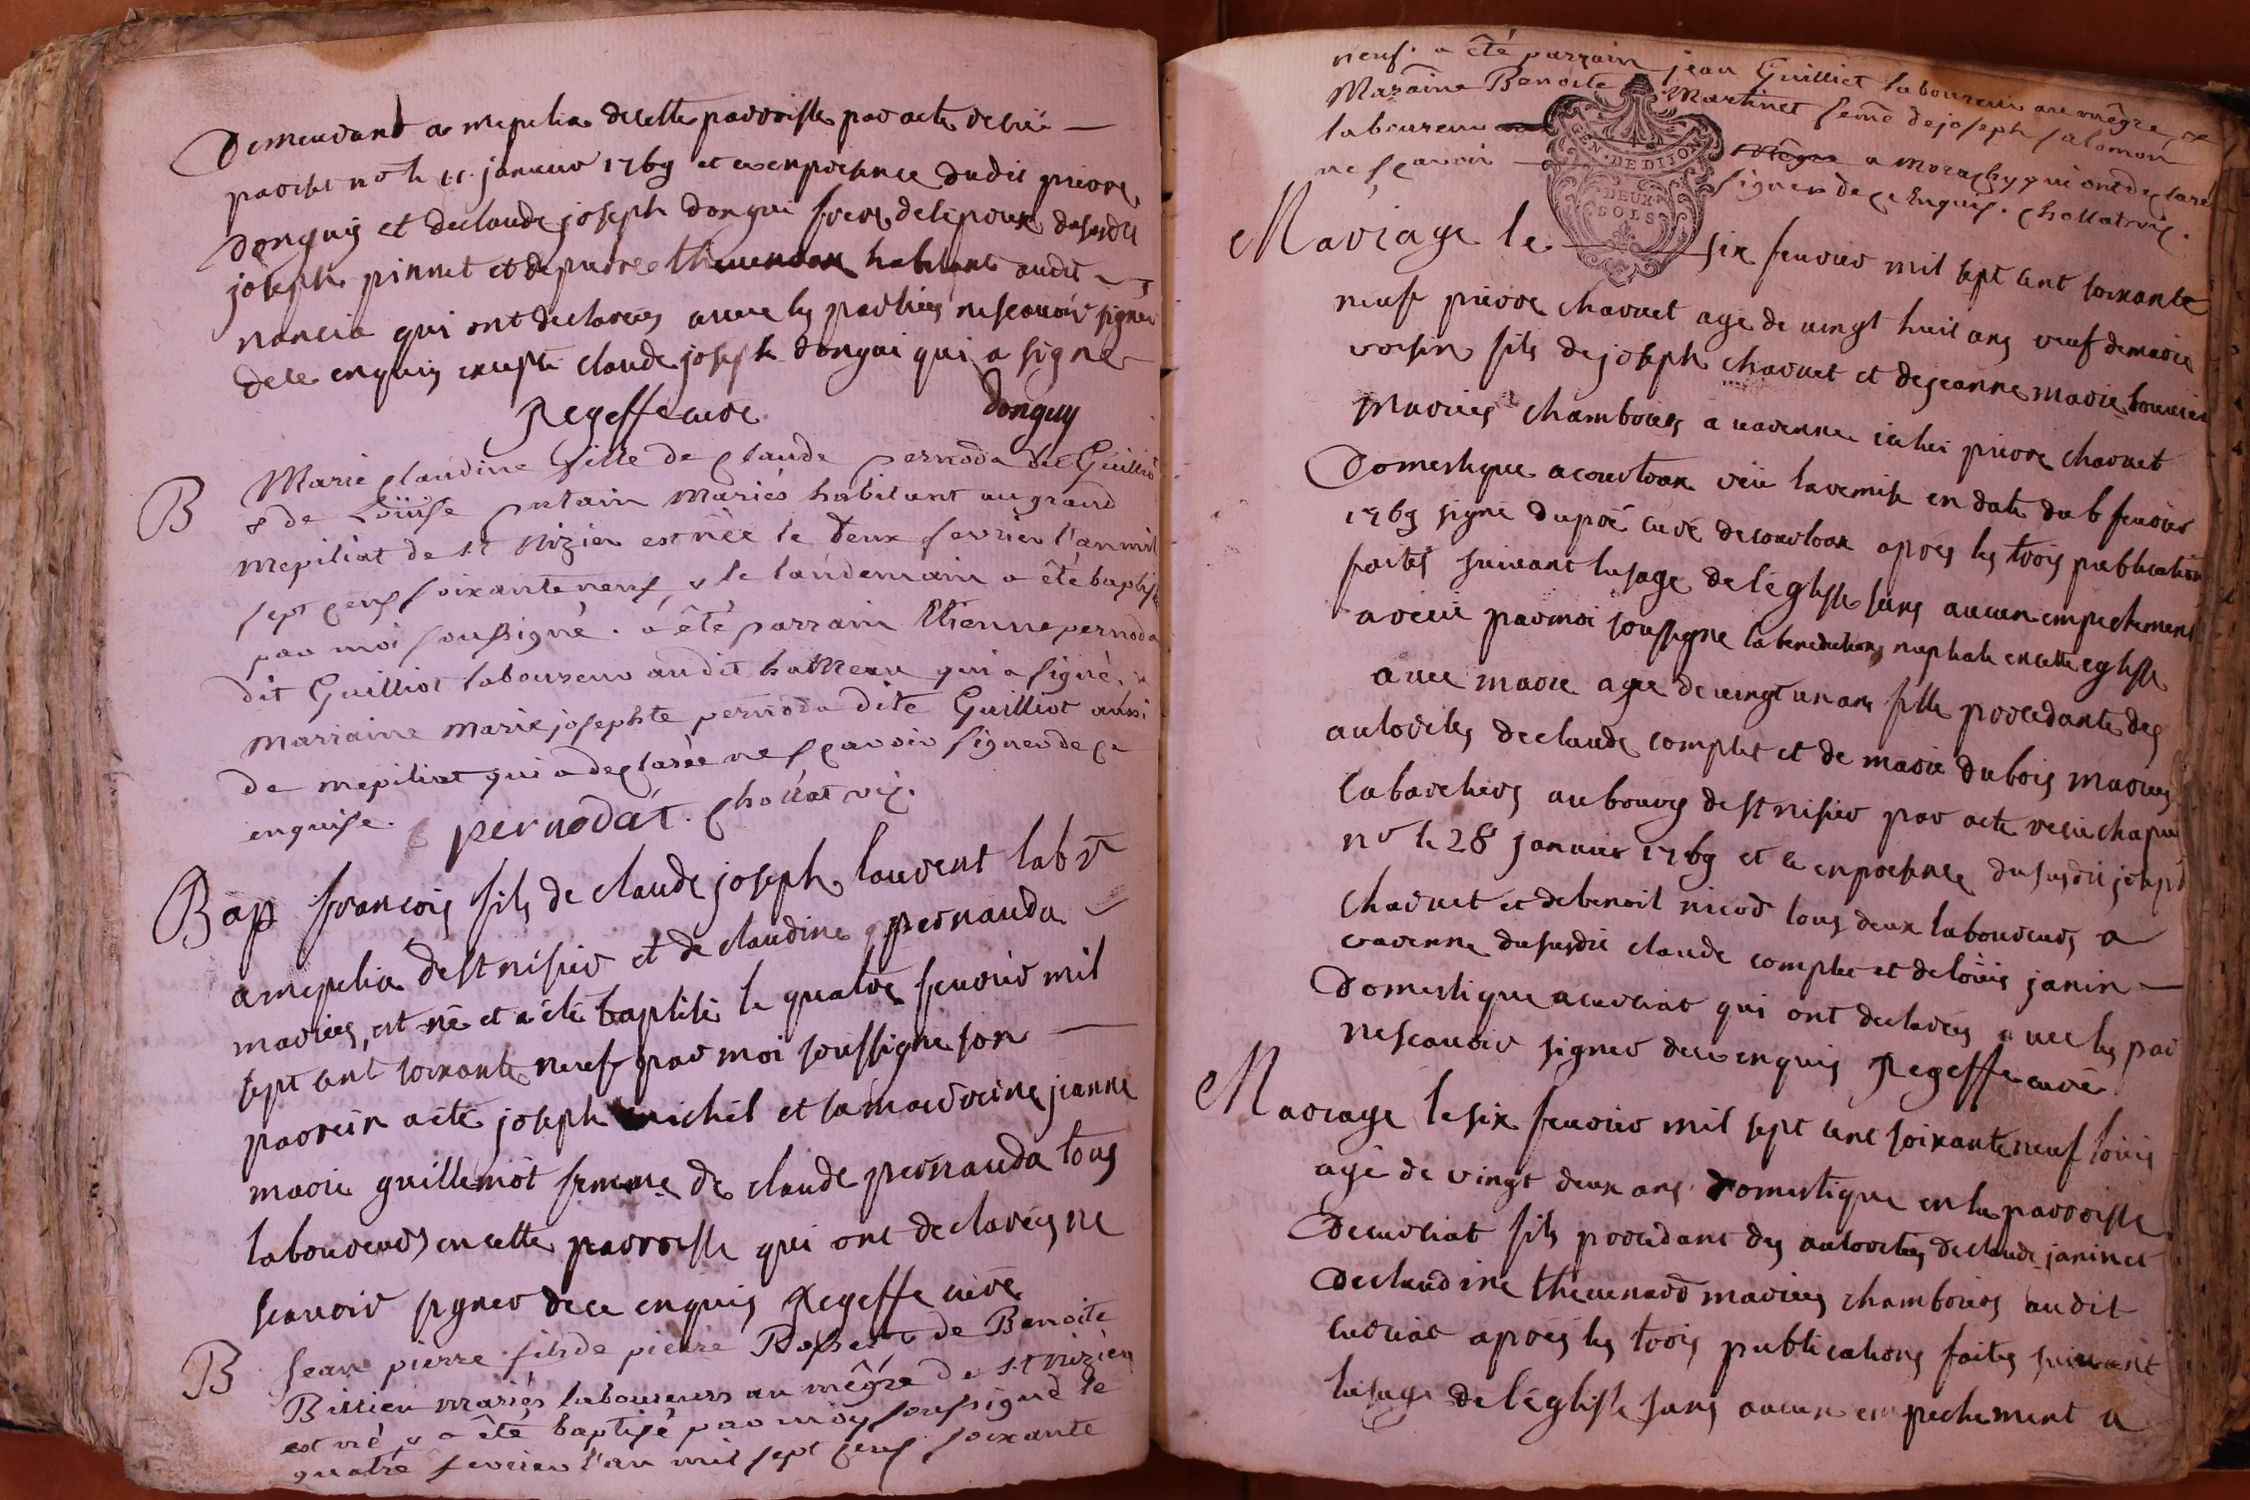 Demeurant a mepelia de cette parroisse par acte reçu
par    no^re le 11. janvier 1769 et ce en presence dudit pierre
donguy et de claude joseph dongui frere de lepoux du susdit
joseph pinnet et de pierre thevenoux habitants audit
nancia qui ont declarées avec les parties ne scavoir signer
de ce enquis excepté claude joseph dongui qui a signé
Regeffe curé donguy
B Marie claudine fille de claude pernoda dit Guilliot
& de Loüise putain mariés habitant au grand
mepiliat de s.t Nizier est née le deux fevrier l'an mil
sept cens soixante neuf, & le landemain a êté baptisée
par moi soussigné. a êté parrain Etienne pernoda
dit Guilliot laboureur audit hameau qui a signé. &
marraine marie josephte pernoda dite Guilliot aussi
de mepiliat qui a declarée ne sçavoir signer de ce
enquise. pernodat. Chollat vic.
Bap françois fils de claude joseph laurent lab^r
a mepelia de st nisier et de claudine pernauda
mariés, est né et a été baptisé le quatre fevrier mil
sept cent soixante neuf par moi soussigné son
parrein a été joseph michel et sa marreine jeanne
marie guillemot femme de claude pernauda tous
laboureurs en cette parroisse qui ont declarées ne
scavoir signer de ce enquis Regeffe curé
B Jean pierre fils de pierre   & de Benoite
Billien mariés laboureurs au mêgre de s.t nizier
est né & a êté baptisé par moy soussigné le
quatre fevrier l'an mil sept cens soixante
neuf. a êté parrain jean Guilliet laboureur au mêgre, &
Maraine Benoite Martinet feme de joseph salomon
laboureur a   qui ont declaré
ne sçavoir signer de ce Enquis. Chollat vic.
GEN. DE DIJON
DEUX
SOLS
Mariage le six fevrier mil sept cent soixante
neuf pierre charvet agé de vingt huit ans veuf de marie
voisin fils de joseph charvet et de jeanne marie bouvier
Mariés chambours a varenne icelui pierre charvet
Domestique a courtoux veü la remise en date du 6 fevrier
1769 signé dupré curé de courtoux apres les trois publications
faites suivant lusage de léglisse sans aucun empechement
a reçüe par moi soussigne la benediction nuptiale en cette eglisse
avec marie agée de vingt un ans fille procedante des
autorités de claude complet et de marie dubois mariés
cabaretiers au bourg de st nisier par acte reçu chapui
n^re le 28 janvier 1769 et ce en presence du susdit joseph
charvet et de benoit nicod tous deux laboureurs a
varenne du susdit claude complet et de loüis janin
domestique a curciat qui ont declarées avec les par
ne scavoir signer de ce enquis Regeffe curé
Mariage le six fevrier mil sept cent soixante neuf loüis
agé de vingt deux ans domestique en la parroisse
de curciat fils procedant des autorités de claude janin et
de claudine thevenard mariés chambours audit
curciat apres les trois publications faites suivant
lusage de léglisse sans aucun empechement a